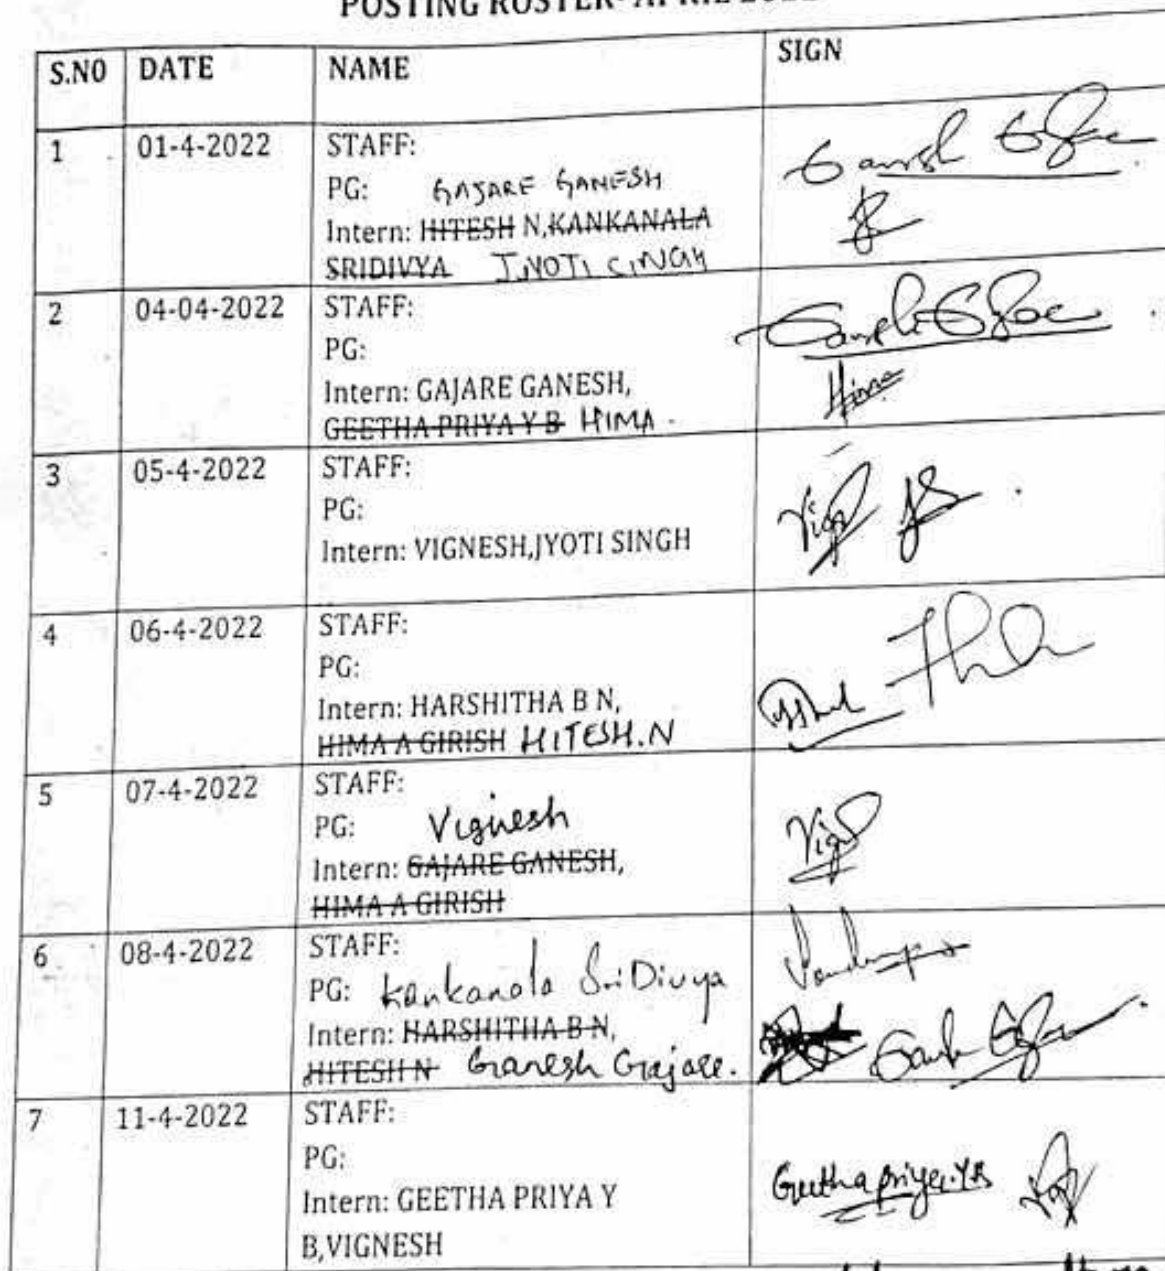 POSTING ROSTER- APRIL 2022
S.NO DATE NAME SIGN
1 01-4-2022 STAFF:
PG: GAJARE GANESH
Intern: HITESH N,KANKANALA
SRIDIVYA JYOTI SINGH
Ganesh
2 04-04-2022 STAFF:
PG:
Intern: GAJARE GANESH,
GEETHA PRIYA Y B HIMA.
Hima
3 05-4-2022 STAFF:
PG:
Intern: VIGNESH,JYOTI SINGH
4 06-4-2022 STAFF:
PG:
Intern: HARSHITHA B N,
HIMA A GIRISH HITESH.N
5 07-4-2022 STAFF:
PG: Vignesh
Intern: GAJARE GANESH,
HIMA A GIRISH
6 08-4-2022 STAFF:
PG: Kankanala SriDivya
Intern: HARSHITHA B N,
HITESH N Ganesh Gajare.
7 11-4-2022 STAFF:
PG:
Intern: GEETHA PRIYA Y
B,VIGNESH
Geethapriya.Y.B